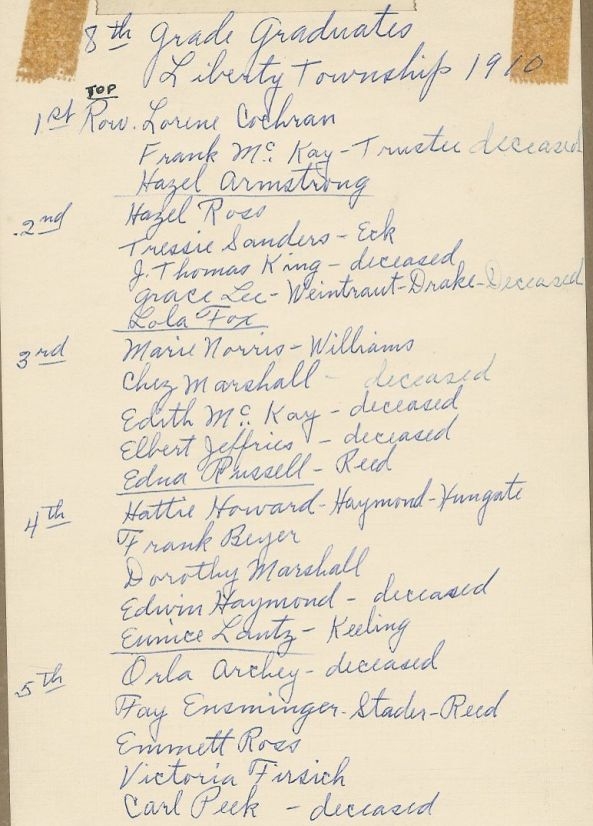 8th Grade Graduates
Liberty Township 1910
TOP
1st Row. Lorene Cochran
Frank Mc Kay - Trustee deceased
Hazel Armstrong
2nd Hazel Ross
Tressie Sanders - Eck
J. Thomas King - deceased
Grace Lee - Weintraut - Drake - Deceased
Lola Fox
3rd Marie Norris - Williams
Chez Marshall - deceased
Edith Mc Kay - deceased
Elbert Jeffries - deceased
Edna Russell - Reed
4th Hattie Howard - Haymond - Yungate
Frank Beyer
Dorothy Marshall
Edwin Haymond - deceased
Eunice Lantz - Keeling
5th Orla Archey - deceased
Fay Ensminger - Stader - Reed
Emmett Ross
Victoria Firsich
Carl Peek - deceased